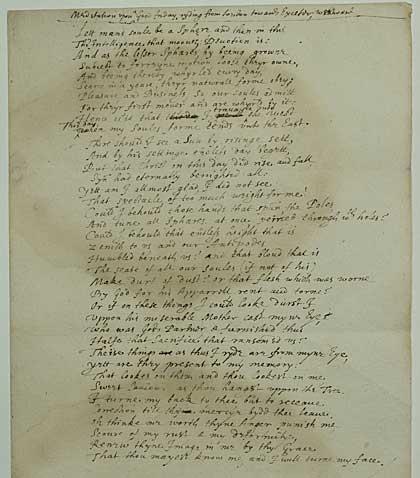 Meditation upon Good friday, ryding from London towards Exceter, westward.
Lett mans soule be a Sphere and then in this
Th'Intelligence, that moves, Devotion is.
And as the other Spheares by being growne
Subiect to forrayne motion loose theyr owne,
And being thereby whyrled every day,
Scarce in a yeare, theyr naturale forme obey;
Pleasure and Businesse So our soules admitt
For theyr first mover and are whyrld by it.
Hence is't that I am carryed towards the West
This day when my Soules forme bends unto the East.
There should I see a Sun by risinge sett,
And by his settinge endles day begett,
But that Christ in this day did rise and fall
Syn had eternally benighted all.
Yett am I allmost glad I did not see
That spectacle of too much weight for me.
Could I behould those hands that span the Poles
And tune all Spheares at once, peirced through with holes?
Could I behould that endles heighth that is
Zenith to vs and our Antipodes
Humbled beneath vs? and that bloud that is
The seate of all our soules if not of his?
Make durt of dust? or that flesh which was worne
By God for his Apparrell rent and torne?
Or if on these things I could looke durst I
Vppon his miserable Mother cast myne Eye,
Who was Gods Partner & furnished thus
Halfe that Sacrifice that ransom'd vs?
Theise things as I ryde are from myne Eye,
Yett are they present to my memory:
That lookes on them and thou lookest on me
Sweet Saviour as thou hangst vppon the Tree
I turne my back to thee but to receaue
Correction till thy mercyes bydd thee leaue.
Oh thinke me worth thyne Anger punish me
Scoure of my rust & my deformitie,
Renew thyne Image in me by thy Grace
That thou mayest know me, and I will turne my face.